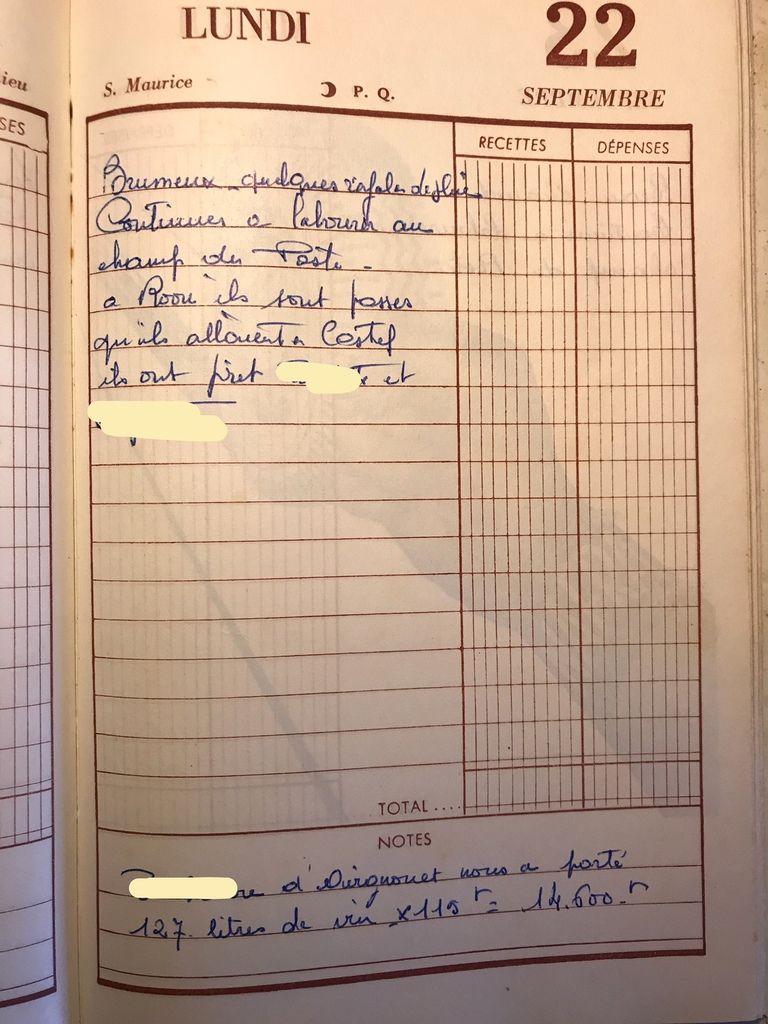 LUNDI 22
S. Maurice P. Q. SEPTEMBRE
ieu
SES
RECETTES DÉPENSES
Brumeux - quelques rafales de pluie
Continues a labourer au
champ du Poste -
a ils sont passes
qu'ils allaient a Castel
ils ont et
TOTAL ....
NOTES
d' nous a porté
127 litres de vin x 115 F = 14.600 F